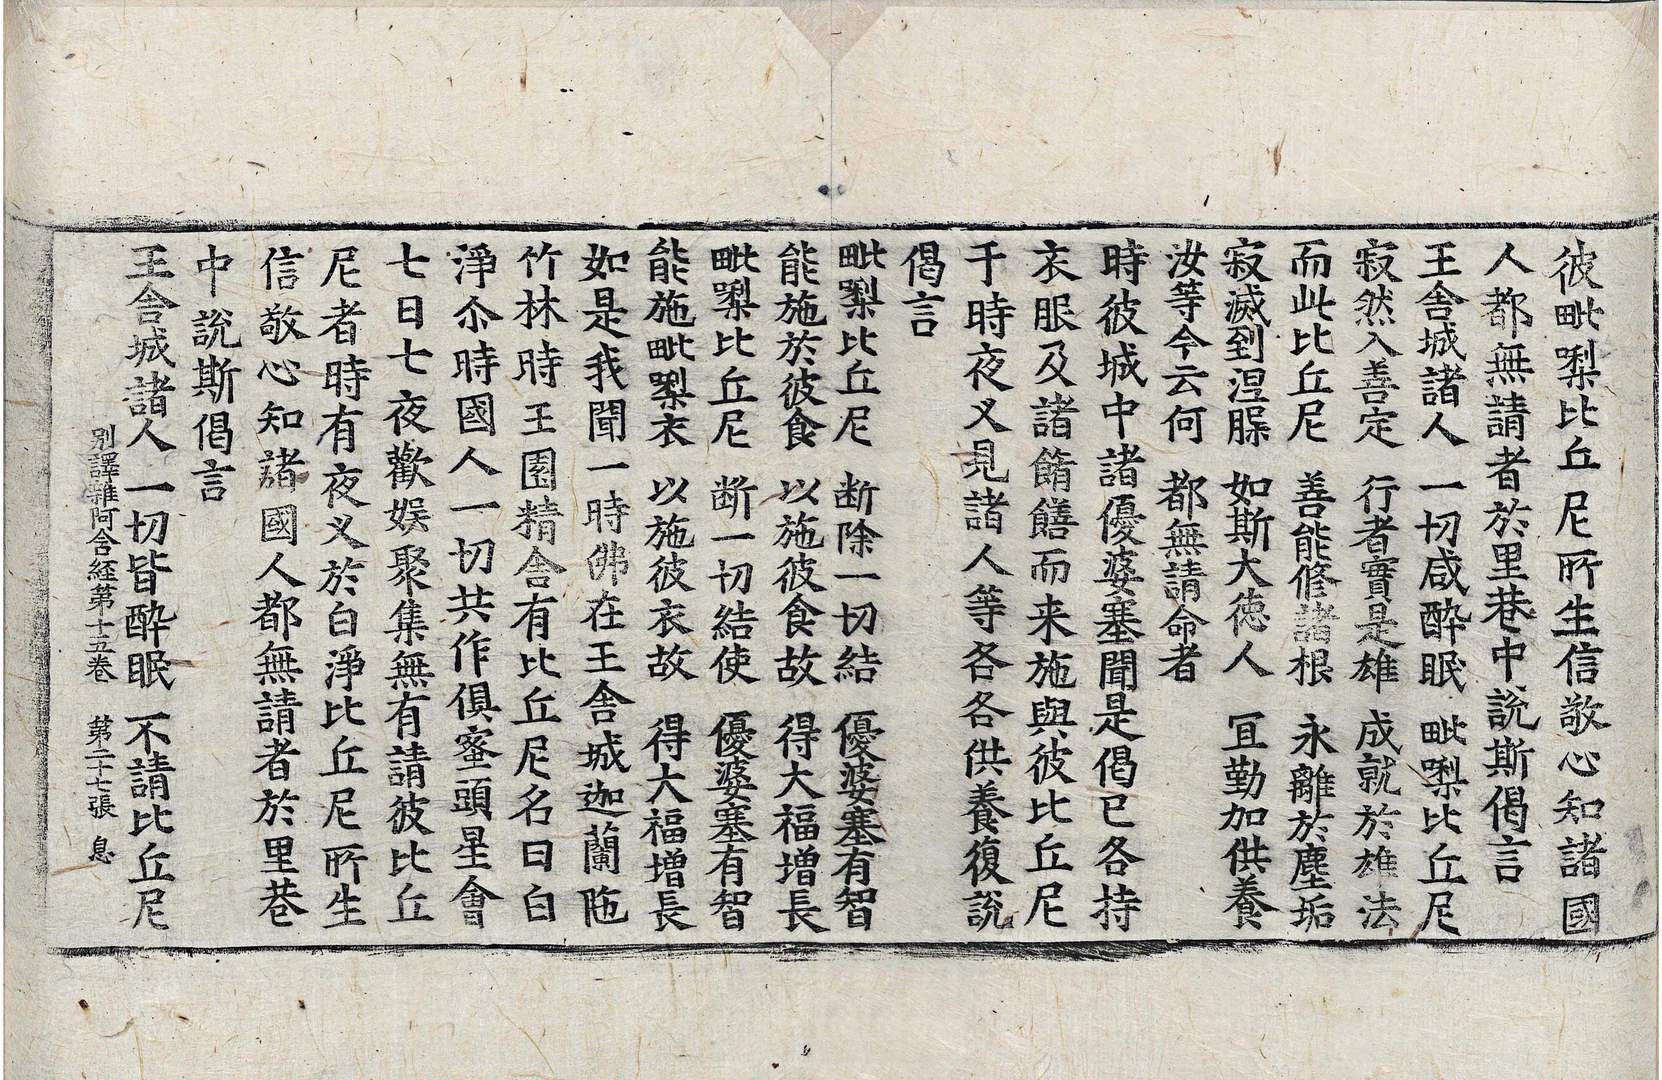 彼毗㗚比丘尼所生信敬心知諸國
人都無請者於里巷中説斯偈言
王舎城諸人 一切咸酔眠 毗㗚比丘尼
寂然入善定 行者實是雄 成就於雄法
而此比丘尼 善能修諸根 永離於塵垢
寂滅到涅槃 如斯大徳人 冝勤加供養
汝等今云何 都無請命者
時彼城中諸優婆塞聞是偈已各持
衣服及諸餚饍而来施與彼比丘尼
于時夜叉見諸人等各各供養復説
偈言
毗㗚比丘尼 断除一切結 優婆塞有智
能施於彼食 以施彼食故 得大福増長
毗㗚比丘尼 断一切結使 優婆塞有智
能施毗㗚衣 以施彼衣故 得大福増長
如是我聞一時佛在王舎城迦蘭陁
竹林時王園精舎有比丘尼名曰白
淨尒時國人一切共作俱蜜頭星會
七日七夜歡娛聚集無有請彼比丘
尼者時有夜叉於白淨比丘尼所生
信敬心知諸國人都無請者於里巷
中説斯偈言
王舎城諸人 一切皆酔眠 不請比丘尼
別譯雜阿含經第十五巻 第二十七張 息